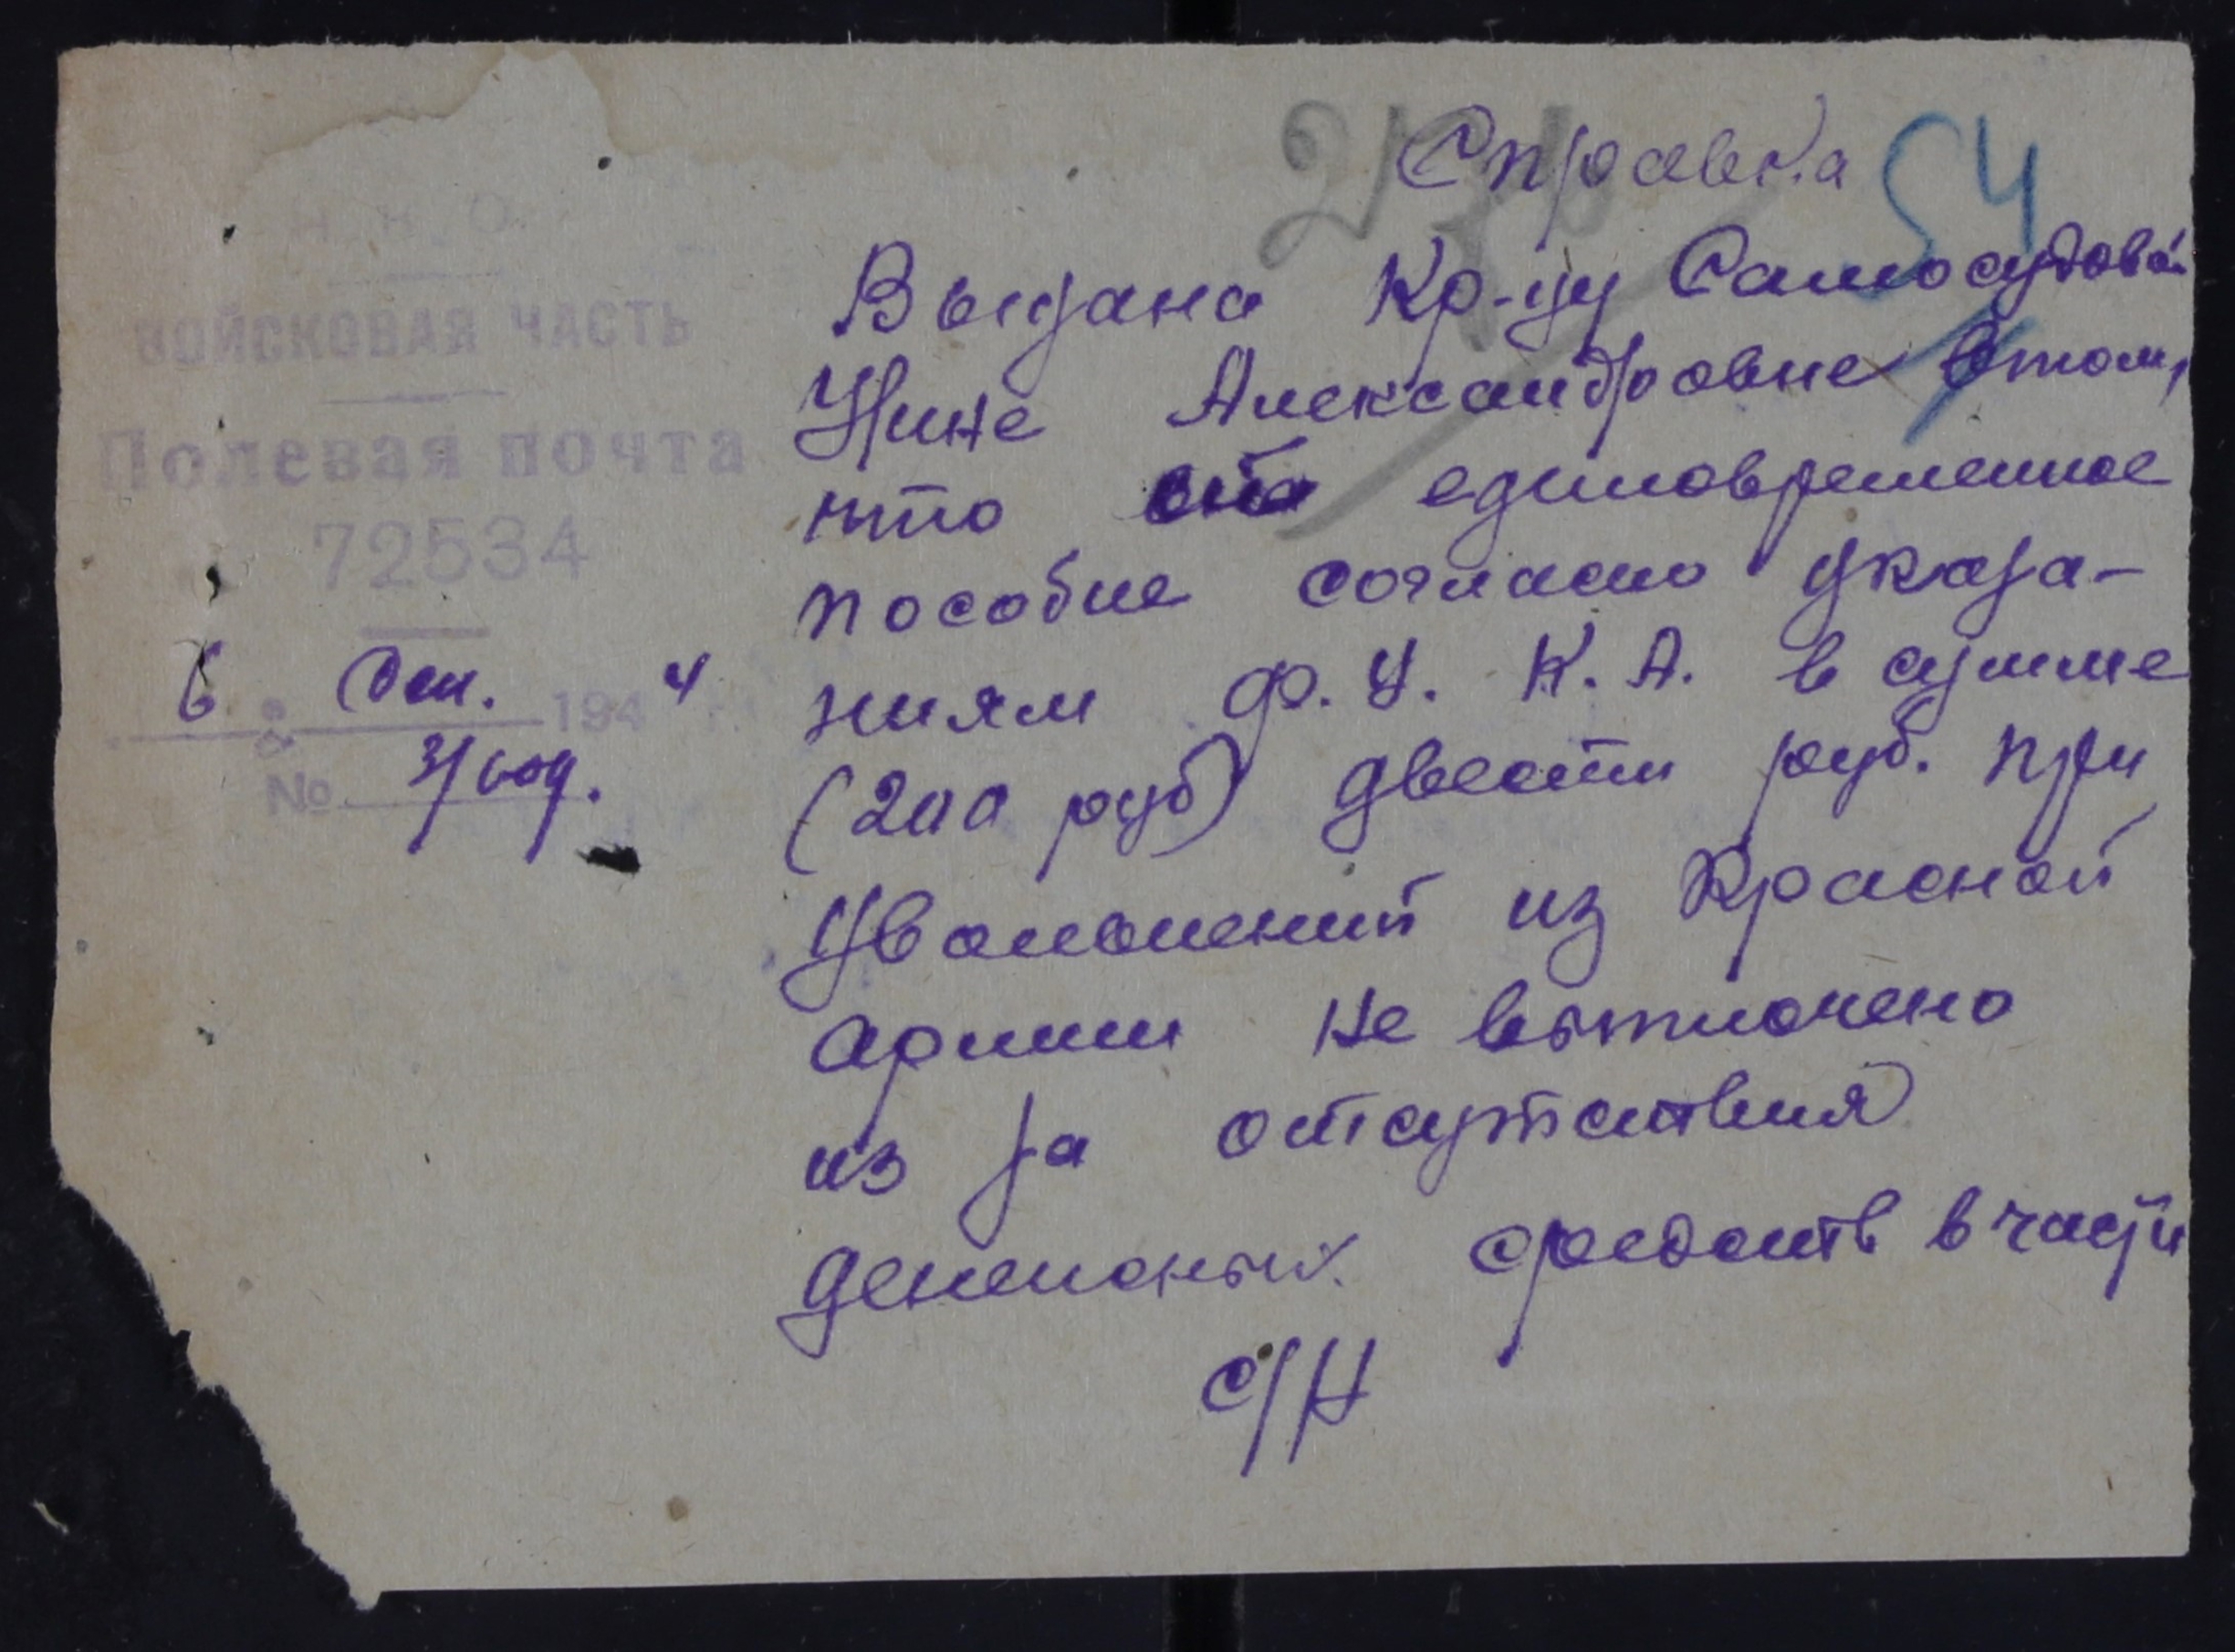 Справка
54
Н. К. О.
ВОЙСКОВАЯ ЧАСТЬ
Полевая почта
72534
6 Дек. 1944
№ 3/бод.
Выдана Кр-цу Самосудовой
Нине Александровне в том,
что единовременное
пособие согласно указа-
ниям Ф. У. К. А. в сумме
(200 руб) двести руб. при
увольнений из Красной
армии не выплочено
из за отсутствия
денежных средств в части
с/н